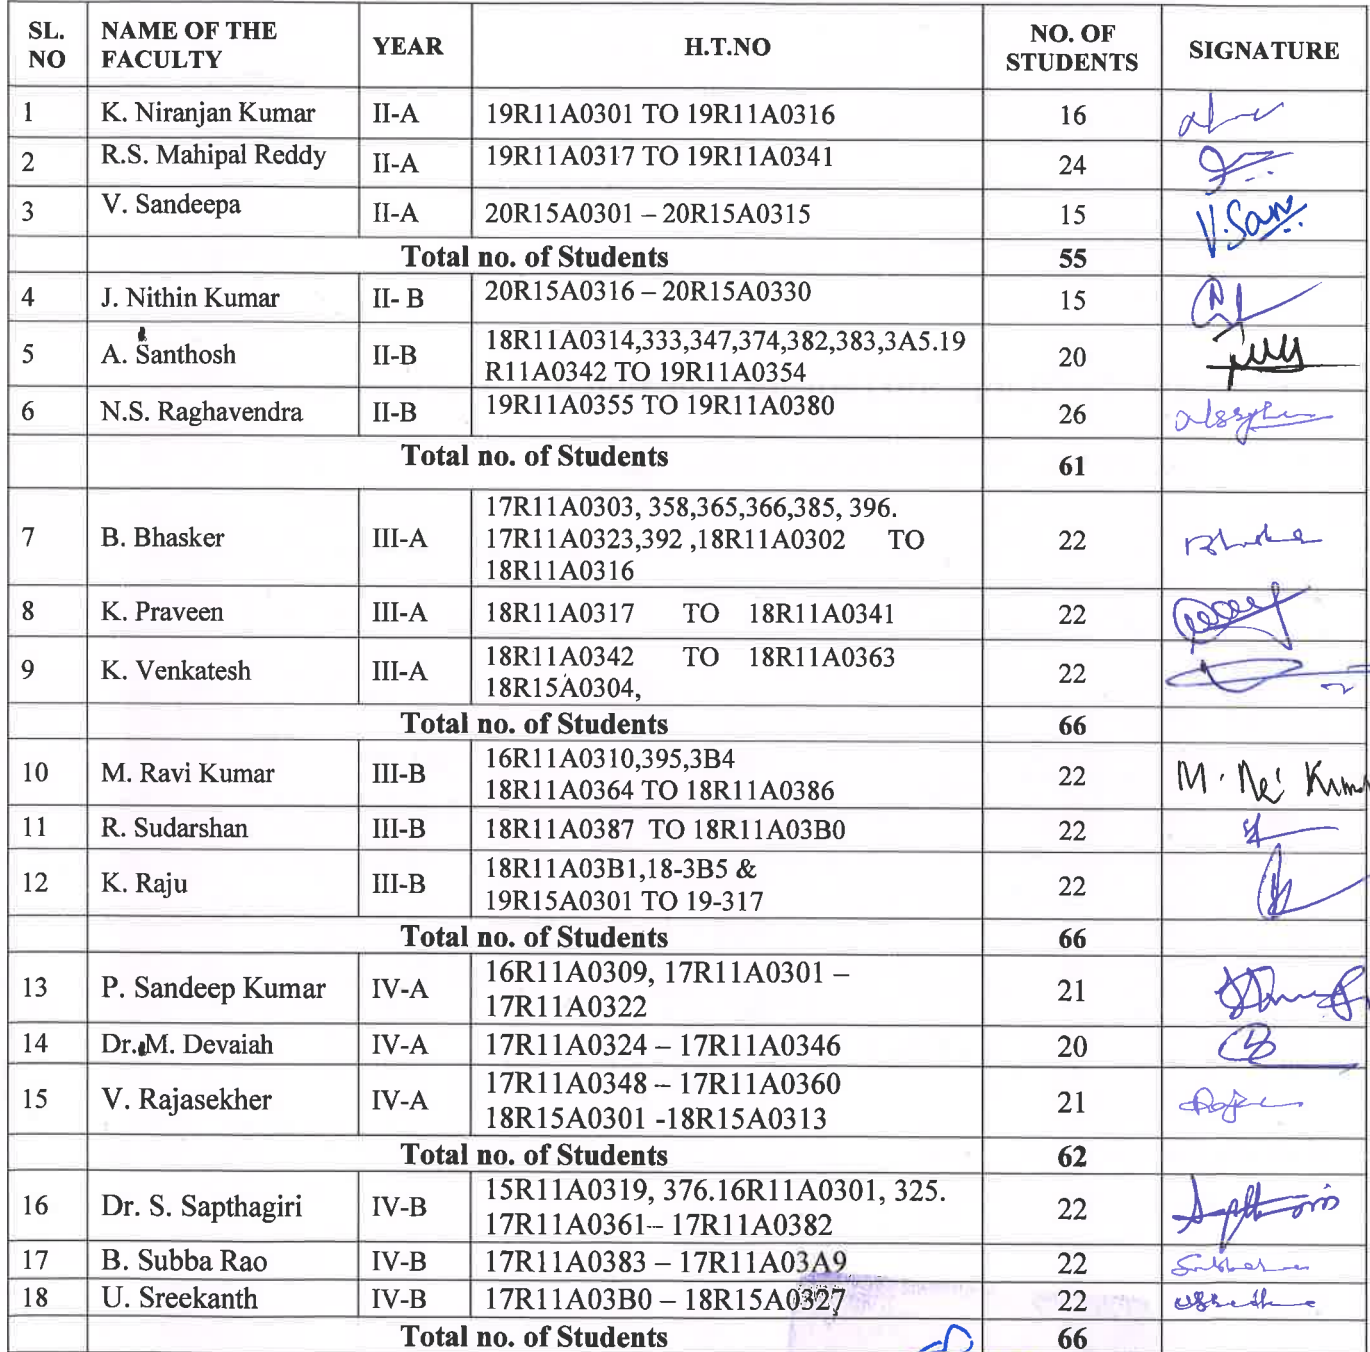 SL. NO NAME OF THE FACULTY YEAR H.T.NO NO. OF STUDENTS SIGNATURE
1 K. Niranjan Kumar II-A 19R11A0301 TO 19R11A0316 16
2 R.S. Mahipal Reddy II-A 19R11A0317 TO 19R11A0341 24
3 V. Sandeepa II-A 20R15A0301 – 20R15A0315 15 V.San
Total no. of Students 55
4 J. Nithin Kumar II- B 20R15A0316 – 20R15A0330 15
5 A. Santhosh II-B 18R11A0314,333,347,374,382,383,3A5.19
R11A0342 TO 19R11A0354 20
6 N.S. Raghavendra II-B 19R11A0355 TO 19R11A0380 26
Total no. of Students 61
7 B. Bhasker III-A 17R11A0303, 358,365,366,385, 396.
17R11A0323,392 ,18R11A0302 TO
18R11A0316 22
8 K. Praveen III-A 18R11A0317 TO 18R11A0341 22
9 K. Venkatesh III-A 18R11A0342 TO 18R11A0363
18R15A0304, 22
Total no. of Students 66
10 M. Ravi Kumar III-B 16R11A0310,395,3B4
18R11A0364 TO 18R11A0386 22
11 R. Sudarshan III-B 18R11A0387 TO 18R11A03B0 22
12 K. Raju III-B 18R11A03B1,18-3B5 &
19R15A0301 TO 19-317 22
Total no. of Students 66
13 P. Sandeep Kumar IV-A 16R11A0309, 17R11A0301 –
17R11A0322 21
14 Dr. M. Devaiah IV-A 17R11A0324 – 17R11A0346 20
15 V. Rajasekher IV-A 17R11A0348 – 17R11A0360
18R15A0301 -18R15A0313 21
Total no. of Students 62
16 Dr. S. Sapthagiri IV-B 15R11A0319, 376.16R11A0301, 325.
17R11A0361– 17R11A0382 22
17 B. Subba Rao IV-B 17R11A0383 – 17R11A03A9 22
18 U. Sreekanth IV-B 17R11A03B0 – 18R15A0327 22
Total no. of Students 66